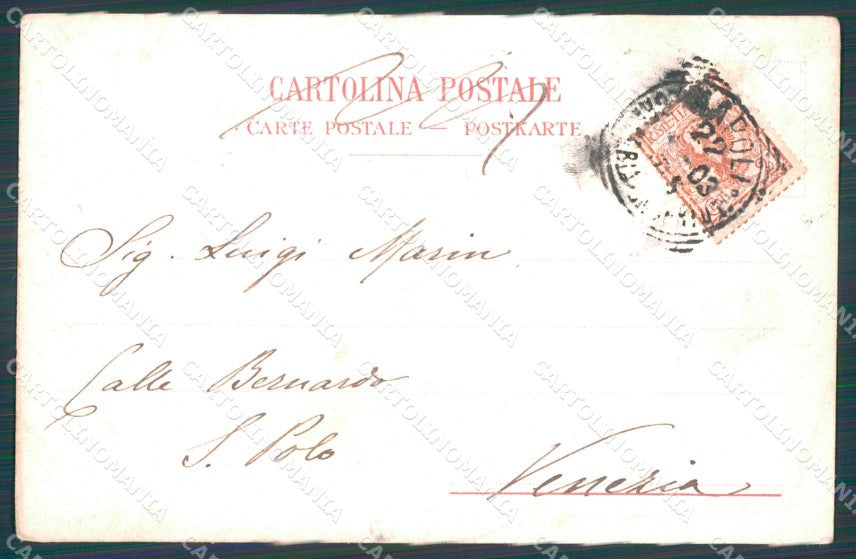 CARTOLINA POSTALE
CARTE POSTALE — POSTKARTE
NAPOLI
22
03
Sig. Luigi Marin
Calle Bernardo
S. Polo
Venezia
CARTOLINOMANIA